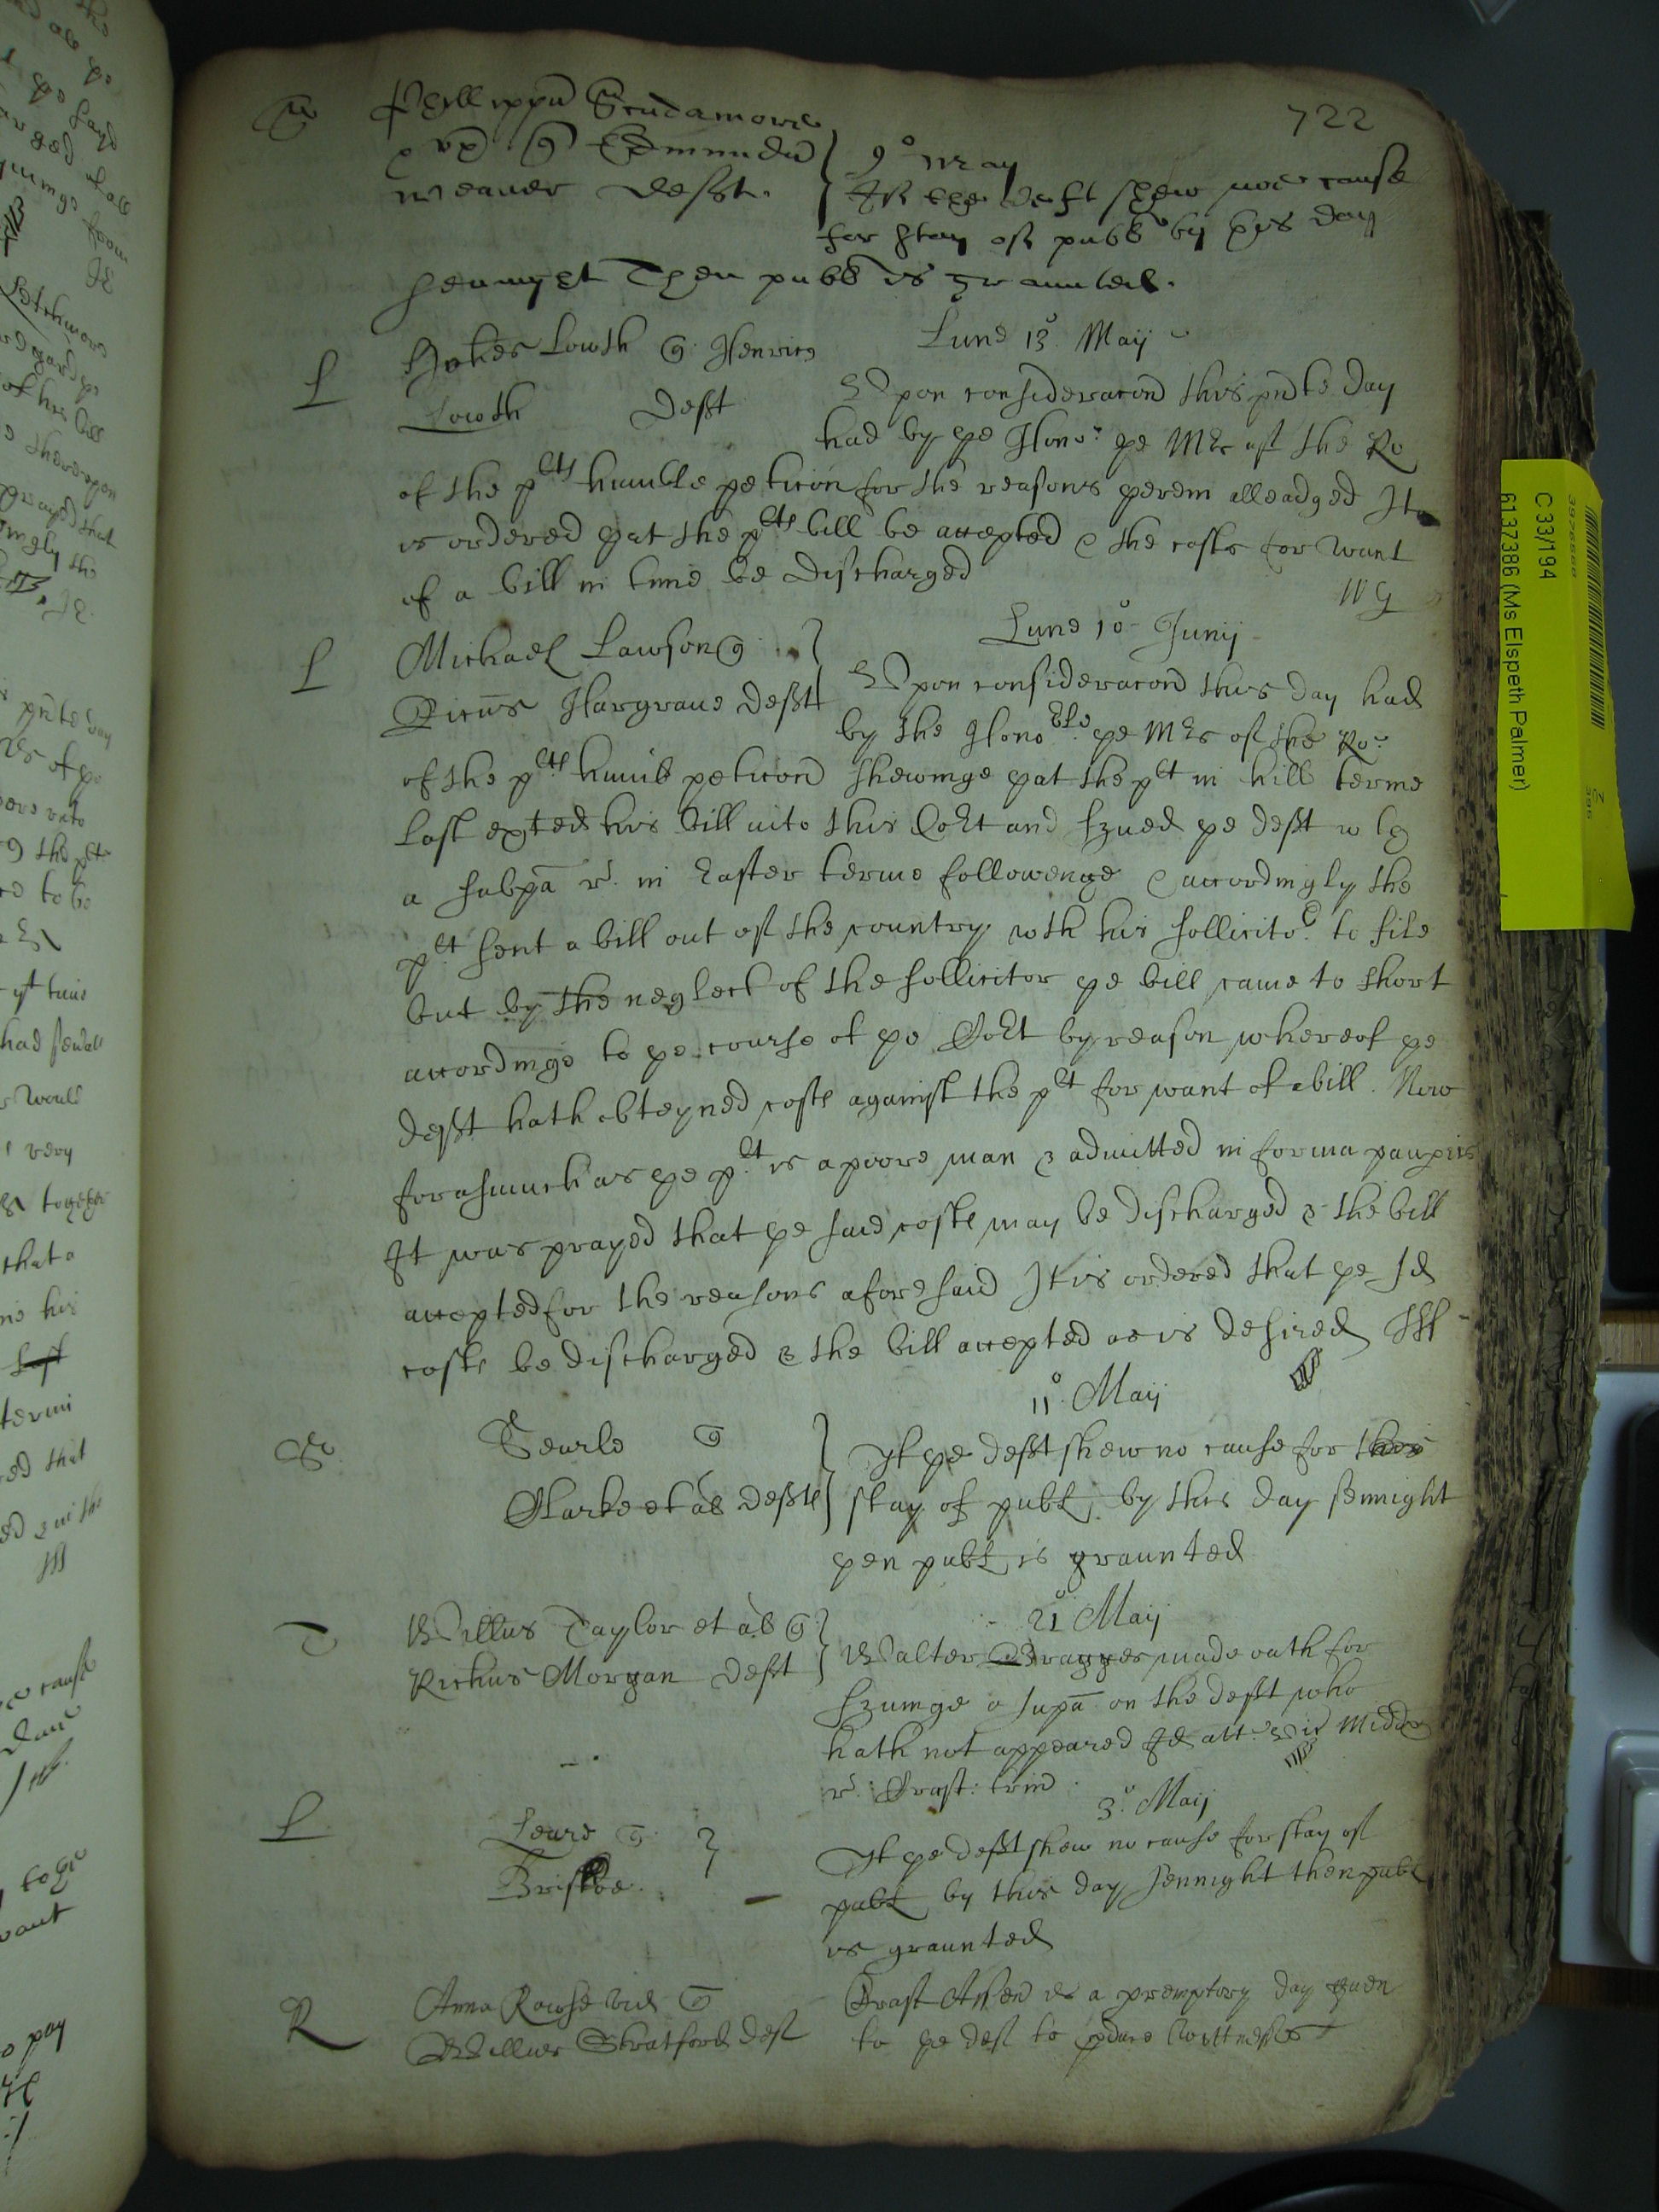 722
S Phillippus Scudamore
& ux q Edmundu
Weaver Defft.
9° May
If the Deft shew noe cause
for stay of publ by this day
sennight Then publ is graunted.
Lune 13° Maij
L Johes Lowth q Henric
Lowth Defft
Upon consideracon this pnte day
had by ye Honor: ye Mr of the Ro
of the plts humble peticon for the reasons yerein alleadged It
is ordered yat the plts bill be accepted & the costs for want
of a bill in time be discharged
WG
Lune 10° Junij
L Michael Lawson q
Ricus Hargrave Defft
Upon consideracon this day had
by the Honoble ye Mr of the Ro:
of the plts humb peticon shewinge yat the plt in hill terme
last exted his bill into this Cort and served ye defft wth
a subpa r. in Easter terme followenge & accordingly the
plt sent a bill out of the country wth his sollicitor to file
but by the neglect of the sollicitor ye bill came to short
accordinge to ye course of ye Cort by reason whereof ye
defft hath obteyned costs against the plt for want of a bill. Now
forasmuch as ye plt is a poore man & admitted in forma pauperis
It was prayed that ye said costs may be discharged & the bill
accepted for the reasons aforesaid It is ordered that ye sd
costs be discharged & the bill accepted as is desired
11° Maij
S Searle q
Clarke et al deffts
If ye defft shew no cause for
stay of publ by this day sennight
yen publ is graunted
21° Maij
T Willus Taylor et al q
Richus Morgan Defft
Walter Bragges made oath for
servinge a supa on the defft who
hath not appeared Id att: Midd
r. Crast: trin
3° Maij
L
Briscoe.
If ye defft shew no cause for stay of
publ by this day sennight then publ
is graunted
R Anna Rowse vid q
Willus Stratford def
Crast Ascen is a premptory day given
to ye def to pduce wittnesses
C 33/194
6137386 (Ms Elspeth Palmer)